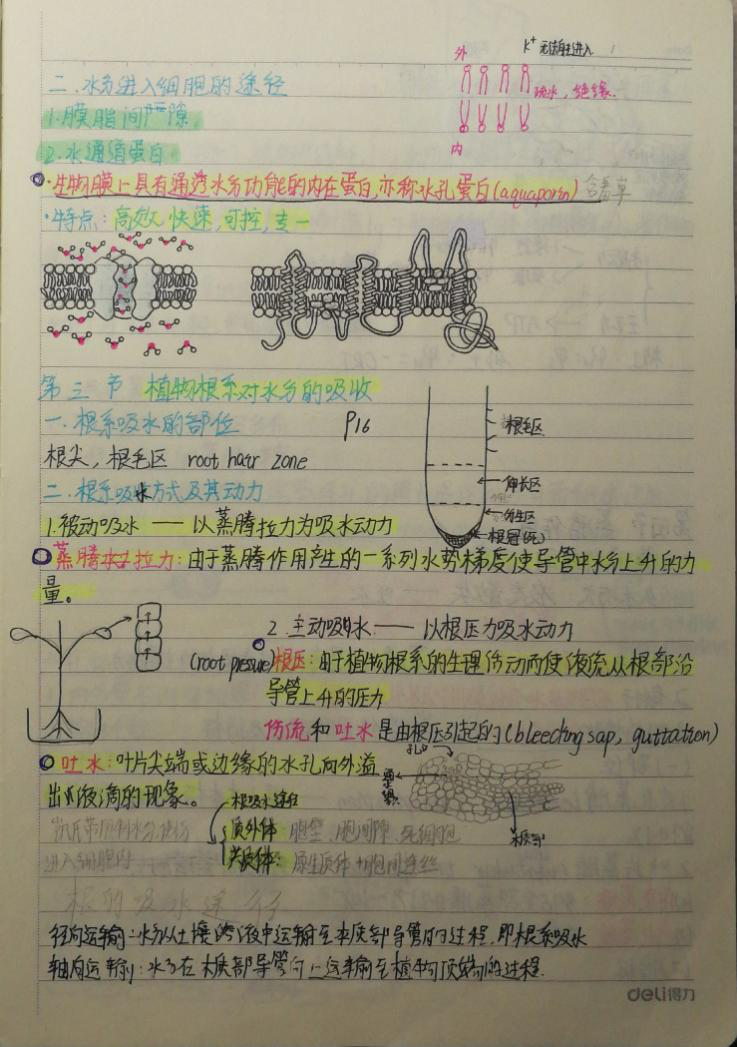 K⁺ 无法自由进入
外
二.水分进入细胞的途径
疏水,绝缘.
1.膜脂间隙
内
2.水通道蛋白
·生物膜上具有通透水分功能的内在蛋白,亦称水孔蛋白(aquaporin) 含羞草
·特点:高效,快速,可控,专一
第三节 植物根系对水分的吸收
一.根系吸水的部位 P16
根毛区
根尖,根毛区 root hair zone
伸长区
二.根系吸水方式及其动力
分生区
1.被动吸水 —— 以蒸腾拉力为吸水动力
根冠(死)
蒸腾拉力:由于蒸腾作用产生的一系列水势梯度使导管中水分上升的力
量。
2.主动吸水 —— 以根压为吸水动力
(root pressure)根压:由于植物根系的生理活动而使液流从根部沿
导管上升的压力
伤流和吐水是由根压引起的(bleeding sap, guttation)
吐水:叶片尖端或边缘的水孔向外溢
出液滴的现象。
根吸水途径
质外体:胞壁,胞间隙,死细胞
共质体:原生质体+胞间连丝
进入细胞内
根的吸水途径
径向运输:水分从土壤溶液中运输至木质部导管的过程,即根系吸水
轴向运输:水分在木质部导管向上运输至植物顶端的过程.
deli得力